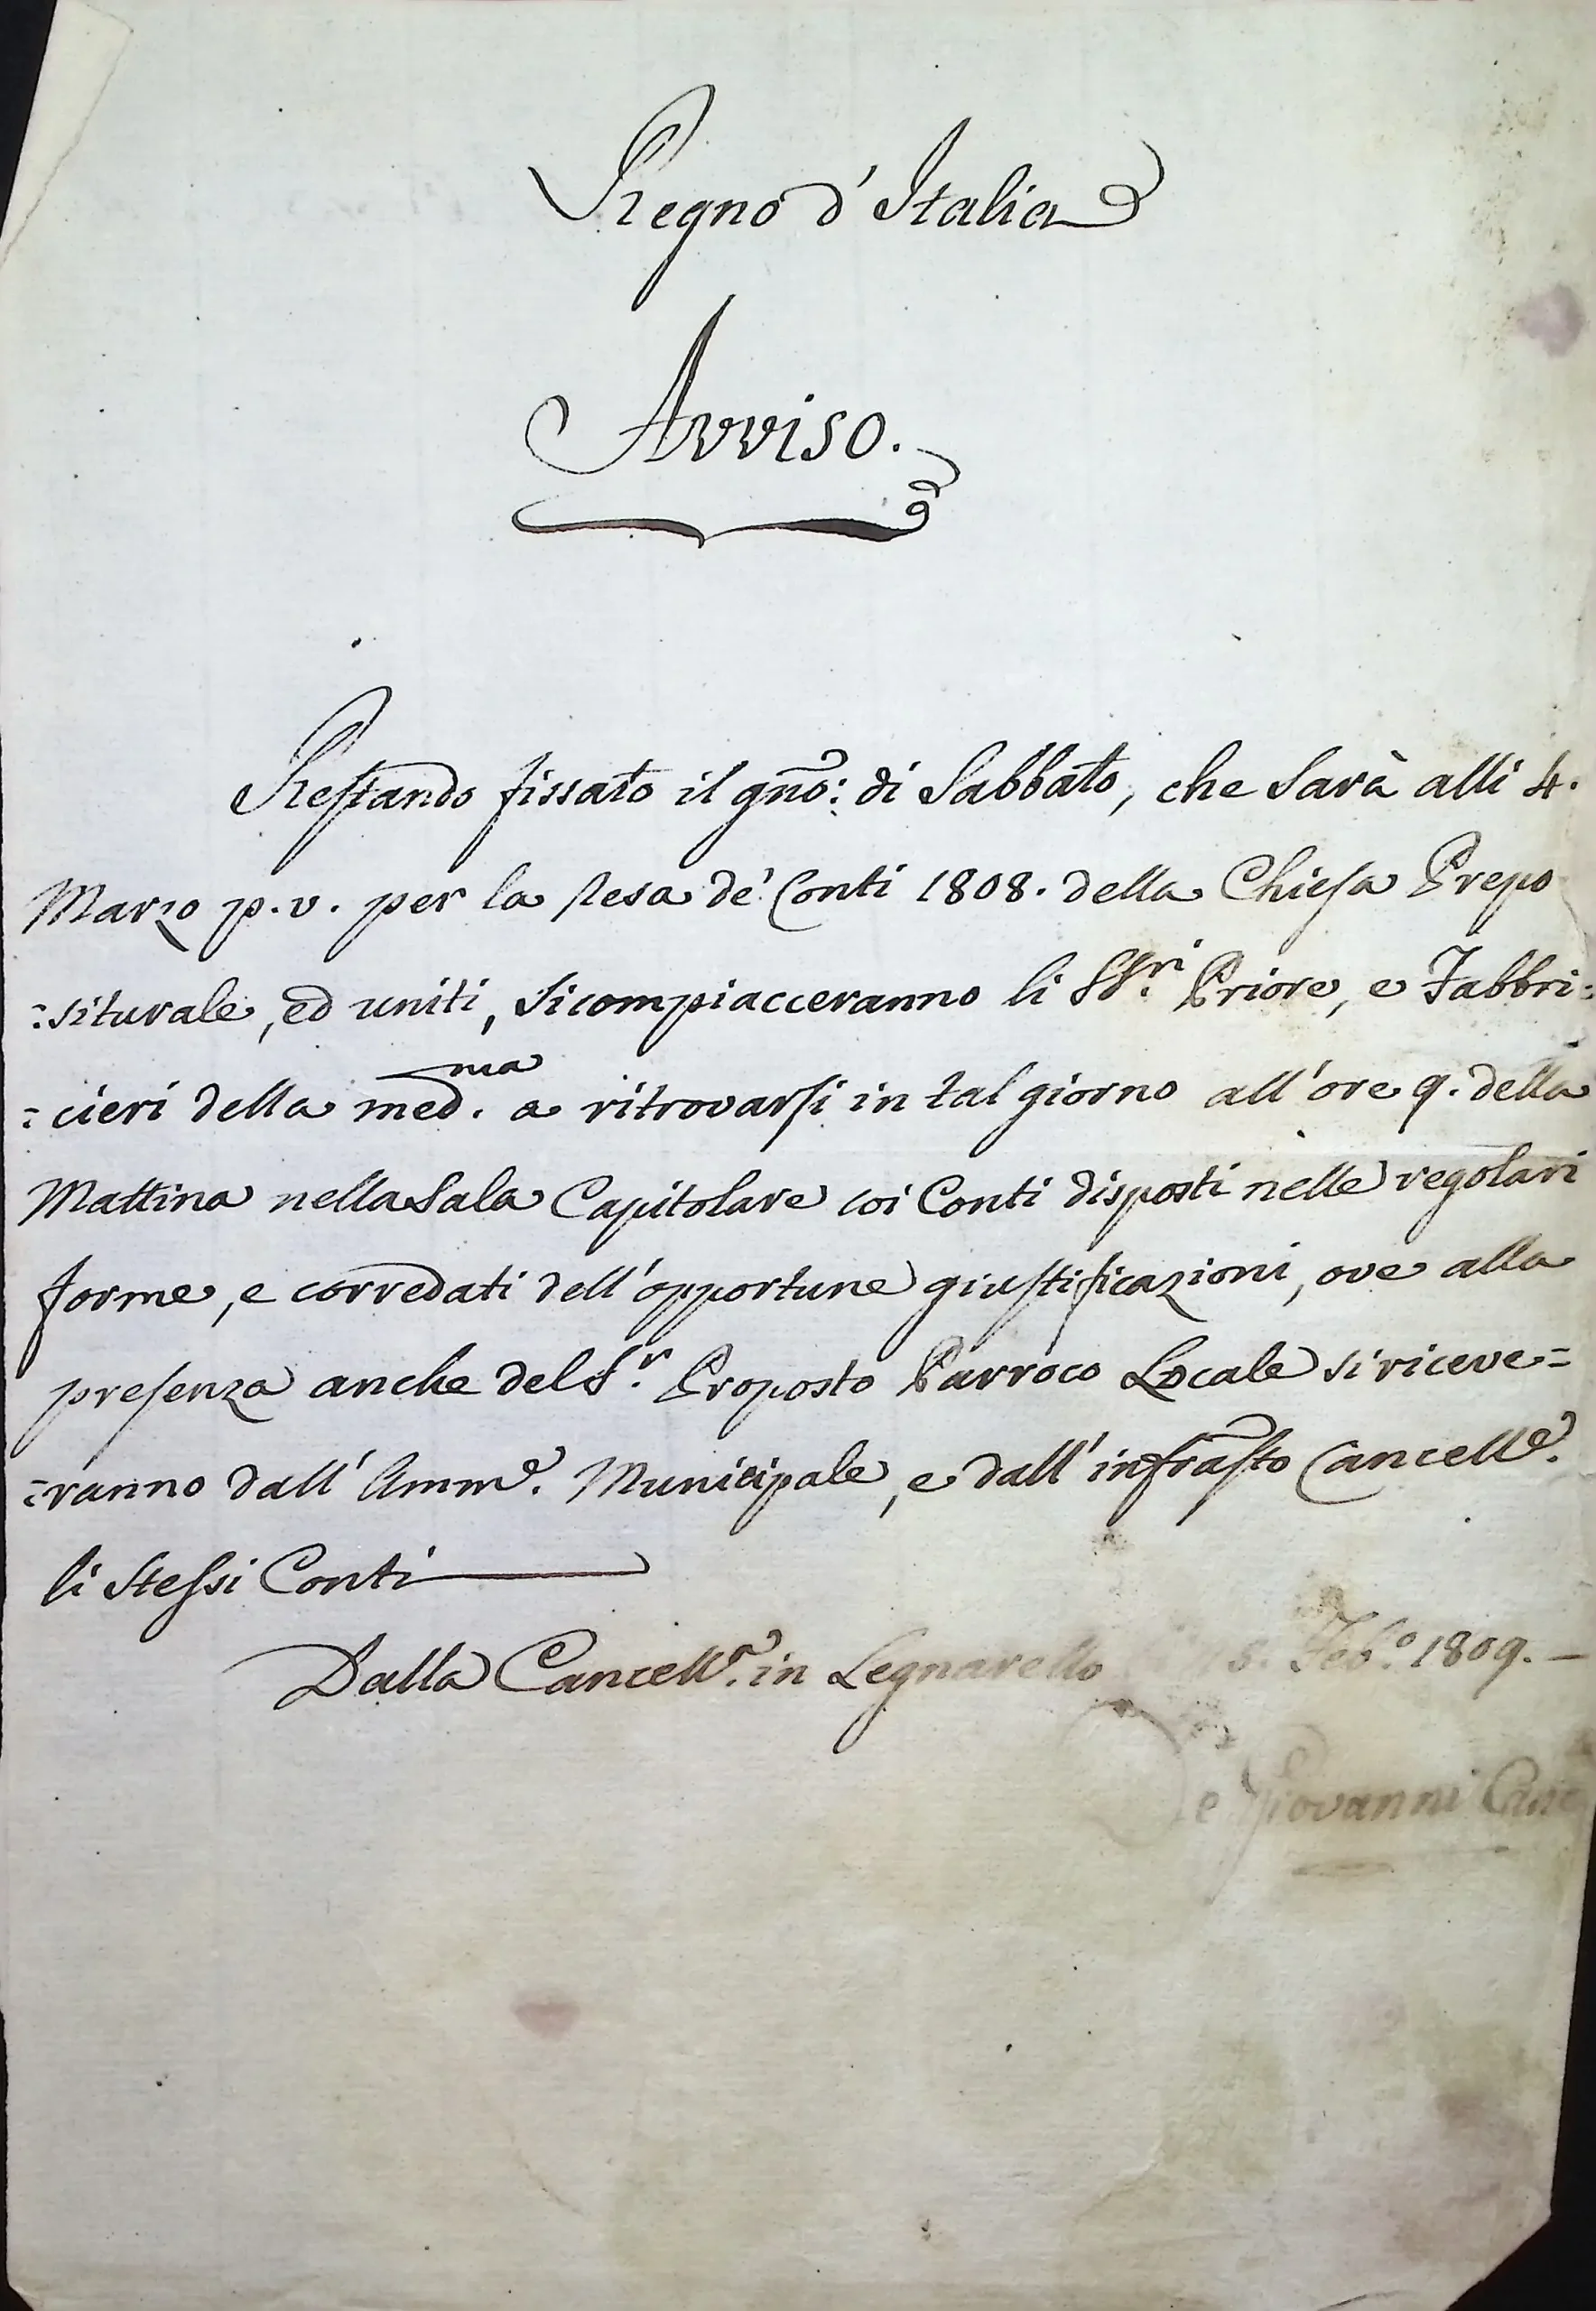 Regno d'Italia
Avviso.
Restando fissato il gño: di Sabbato, che sarà alli 4.
Marzo p.v. per la resa de' Conti 1808. della Chiesa Prepo
=siturale, ed uniti, si compiacceranno li SSri. Priore, e Fabbri=
=cieri della med.ma a ritrovarsi in tal giorno all'ore 9. della
Mattina nella Sala Capitolare coi Conti disposti nelle regolari
forme, e corredati dell'opportune giustificazioni, ove alla
presenza anche del Sr. Proposto Parroco Locale si riceve=
=ranno dall'Amme. Municipale, e dall'infrasto Cancelle.
li stessi Conti
Dalla Cancella. in Legnarello Feb.o 1809.
De Giovanni Canc